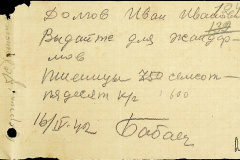 Долгов Иван Иванов 18
139
Видайте для жандар-
мов
Пшеницы 750 семсот-
пядесят кг 600
16/IV-42 Бабаец